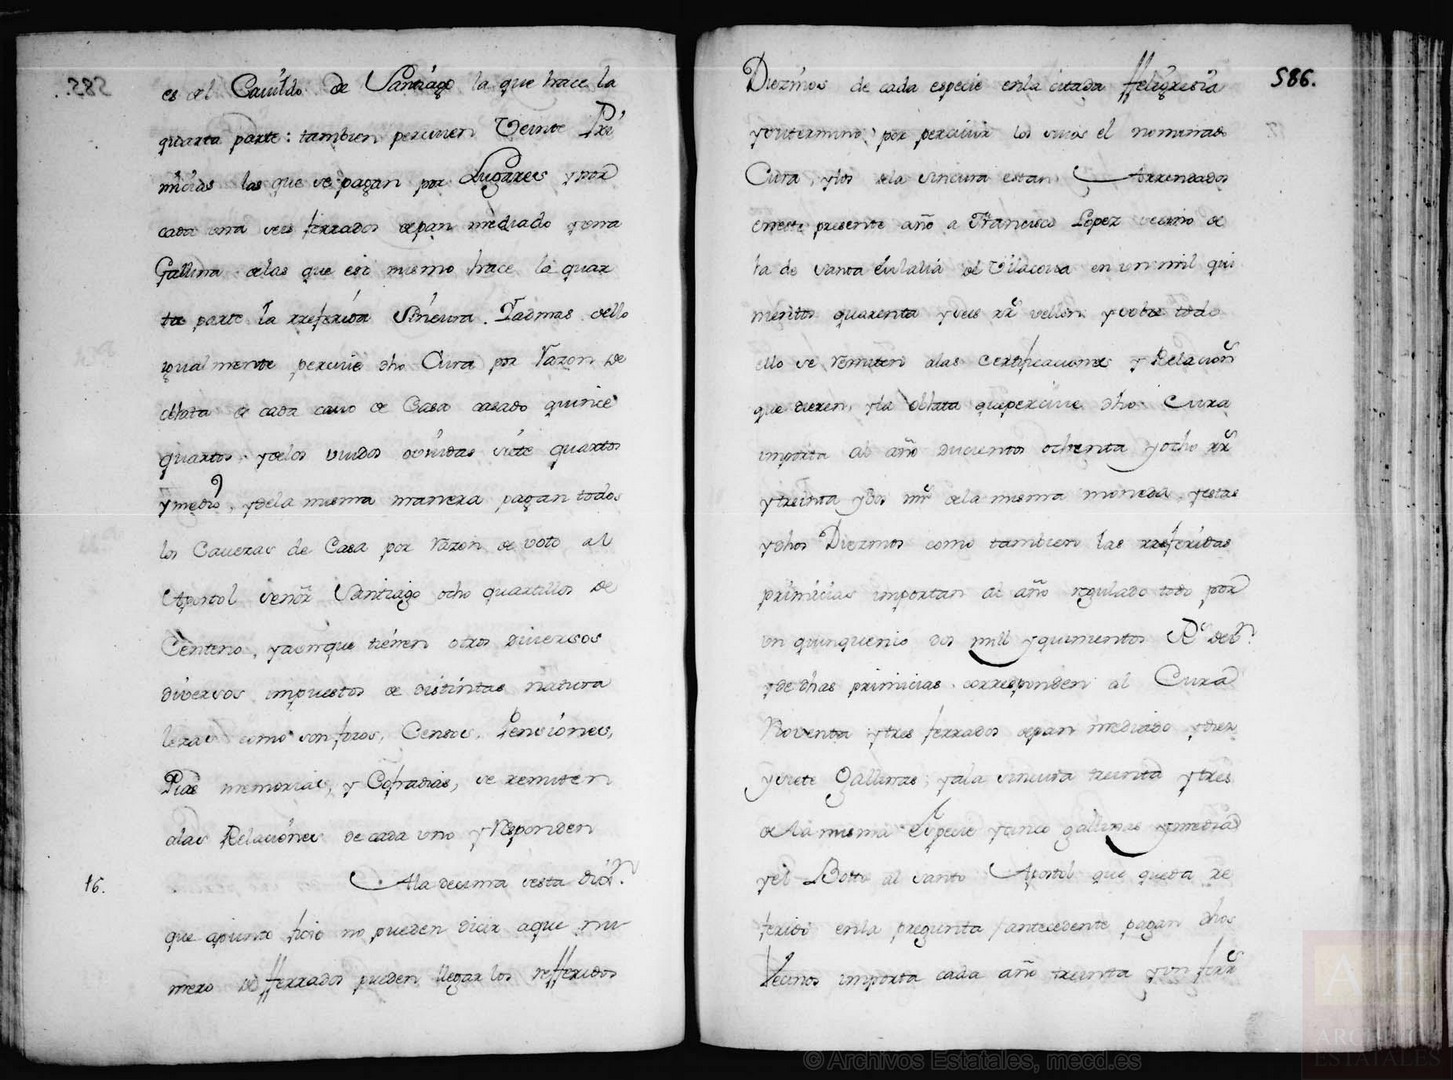 es el Cavildo de Santiago la que hace la
quarta parte: tambien perciuen Veinte Pri
micias las que se pagan por Lugares y por
cada una seis ferrados de pan mediado y una
Gallina de las que esi mismo hace la quar
ta parte la rreferida Sinecura. Y admas dello
igualmente perciue dho Cura por Razon de
oblata de cada cauo de Casa casado quince
quartos, y delos viudos o viudas siete quartos
y medio, y dela misma manera pagan todos
los Caueras de Casa por Razon de voto al
Apostol señor Santiago ocho quartillos de
Centeno, y aunque tienen otros diversos
diversos impuestos de distintas natura
lezas como son foros, Censos, Pensiones,
Pias memorias, y Cofradias, se remiten
alas Relaciones de cada uno y Responden
16.
A la decima sesta Dixn.
que apunto fixo no pueden dicir aque nu
mero de fferrados pueden llegar los refferidos
585.
586.
Diezmos de cada especie enla citada ffeligresia
y su termino, por perciuir los suios el nominado
Cura, y los dela sincura estan Arrendados
eneste presente año a Francisco Lopez vecino de
la de santa Eulalia de Vilacova en un mil qui
nientos quarenta y seis rrs vellon y sobre todo
ello se remiten alas Certificaciones y Relacions
que dieren, y la oblata que perciue dho Cura
importa al año ducientos ochenta y ocho rrs
y treinta y dos mrs dela misma moneda, y estas
y dhos Diezmos como tambien las rreferidas
primicias importan al año regulado todo por
un quinquenio dos mill y quinientos Rs de vn.
y de dhas primicias corresponden al Cura
Noventa y tres ferrados de pan mediado y diez
y siete Gallinas; y ala sincura treinta y tres
de la misma Especie y cinco gallinas y media
y el Botto al santo Apostol que queda re
ferido enla pregunta antecedente pagan dhos
Vecinos importa cada año treinta y un ferrs
© Archivos Estatales, mecd.es
ARCHIVOS
ESTATALES